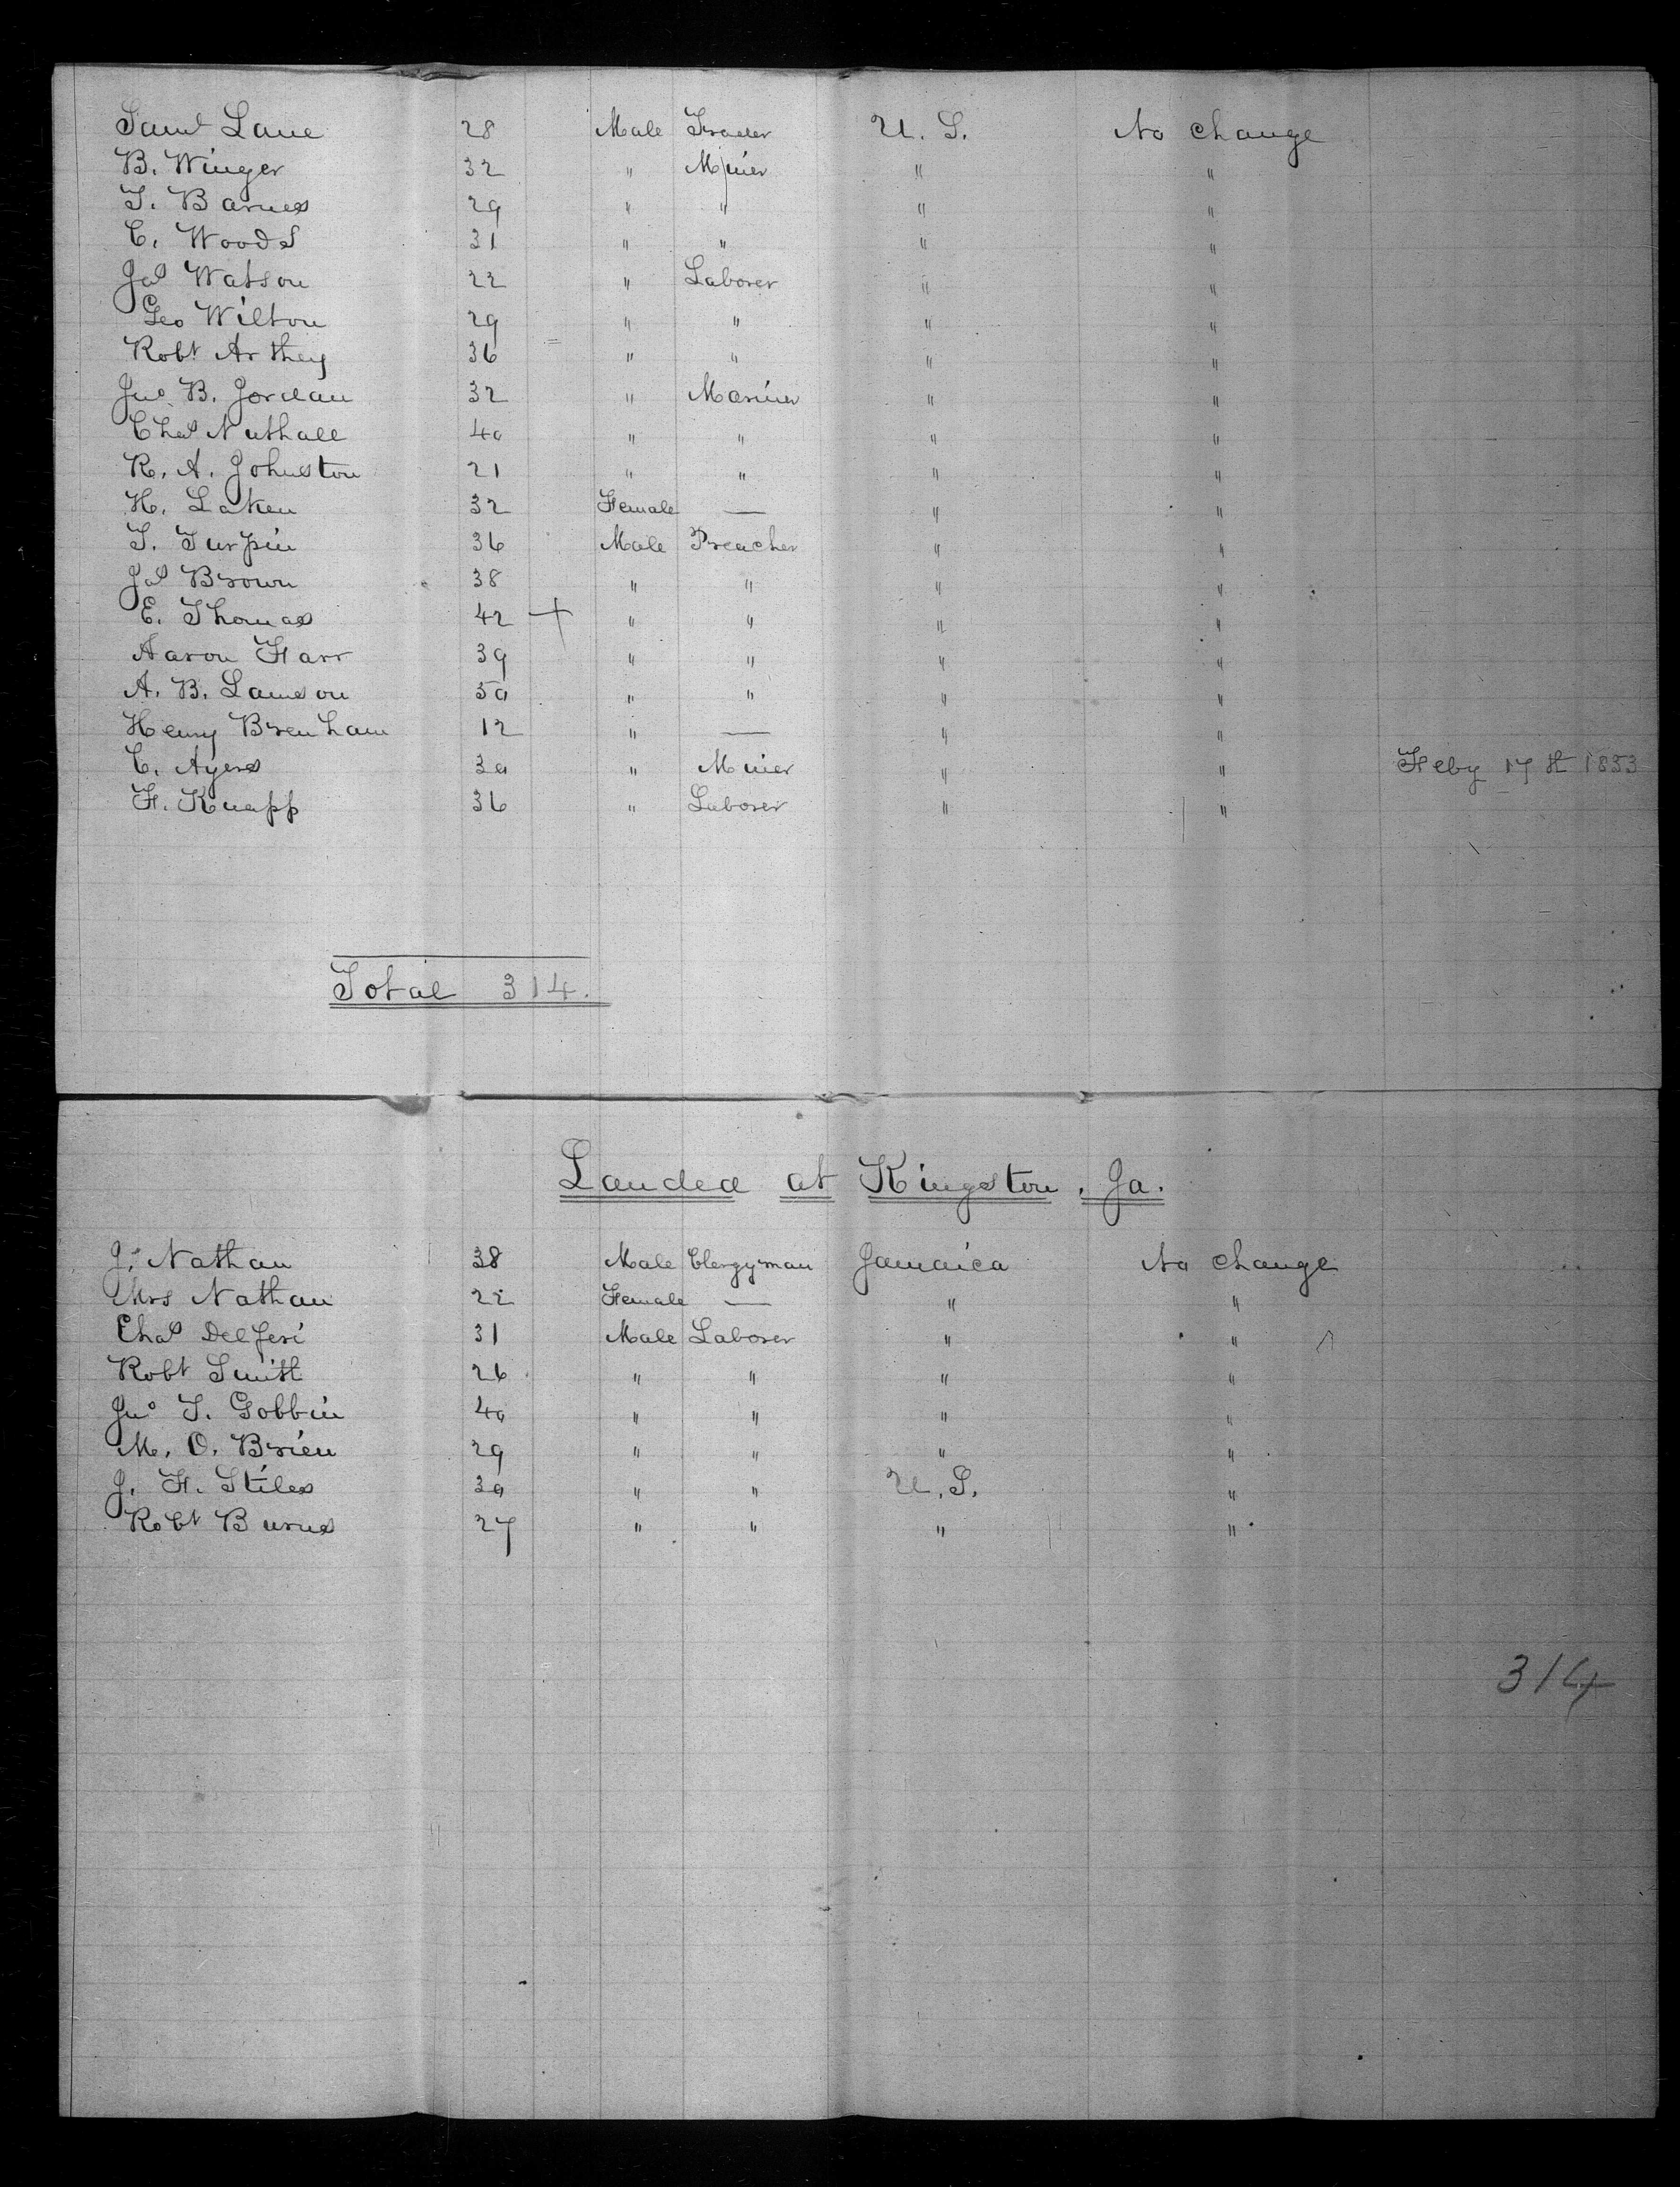 Saml Lane 28 Male Trader U. S. No change
B. Winger 32 " Miner " "
T. Barnes 29 " " " "
C. Woods 31 " " " "
Jas Watson 22 " Laborer " "
Geo Wilton 29 " " " "
Robt Arthey 36 " " " "
Jno B. Jordan 32 " Mariner " "
Chas Nuthall 40 " " " "
R. A. Johnston 21 " " " "
H. Laken 32 Female — " "
T. Turpin 36 Male Preacher " "
Jas Brown 38 " " " "
E. Thomas 42 + " " " "
Aaron Farr 39 " " " "
A. B. Lamson 50 " " " "
Henry Brenham 12 " — " "
C. Ayers 30 " Miner " " Feby 17th 1853
F. Knapp 36 " Laborer " "
Total 314.
Landed at Kingston, Ja.
J. Nathan 38 Male Clergyman Jamaica No change
Mrs Nathan 22 Female — " "
Chas 31 Male Laborer " "
Robt Smith 26 " " " "
Jno T. Gobbin 40 " " " "
M. O. Brien 29 " " " "
J. F. Stiles 30 " " U. S. "
Robt Burns 27 " " " "
314